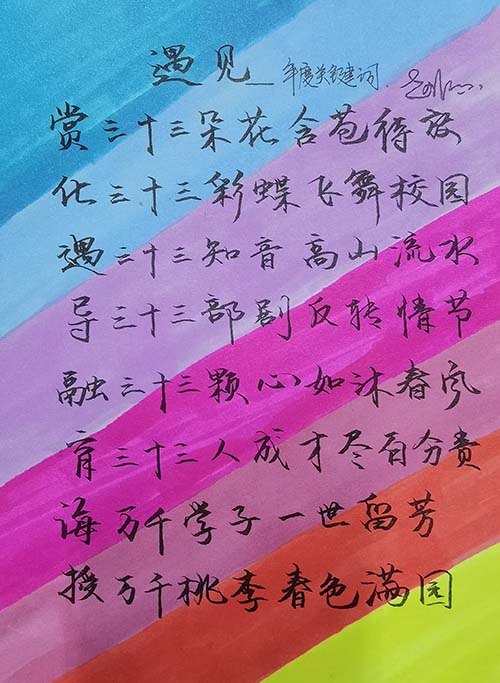 遇见_年度关键词
赏三十三朵花含苞待放
化三十三彩蝶飞舞校园
遇三十三知音高山流水
导三十三部剧反转情节
融三十三颗心如沐春风
育三十三人成才尽百分责
诲万千学子一世留芳
授万千桃李春色满园